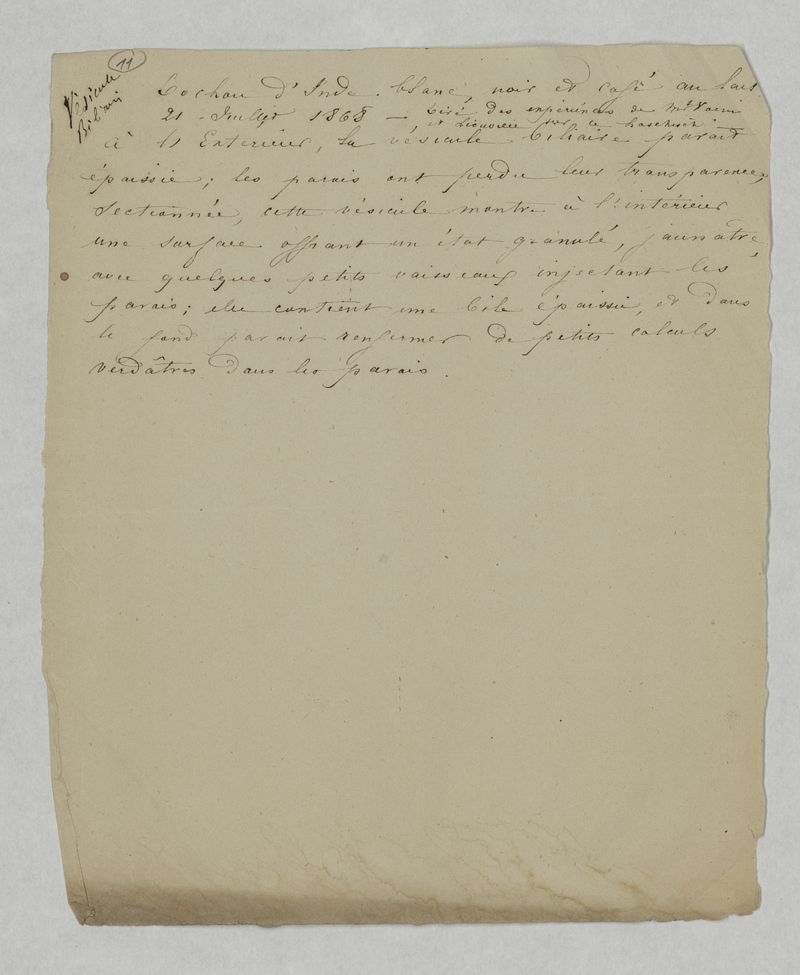 11
Vésicule
Biliaire
Cochon d'Inde blanc, noir et café au lait
21 Juillet 1868 — tiré des expériences de Mr
et Liouville sur le haschisch
à l'Extérieur, la vésicule biliaire parait
épaissie; les parois ont perdu leur transparence;
Sectionnée, cette vésicule montre à l'intérieur
une surface offrant un état granulé, jaunâtre,
avec quelques petits vaisseaux injectant les
parois; elle contient une bile épaissie, et dans
le fond parait renfermer de petits calculs
verdâtres dans les parois.